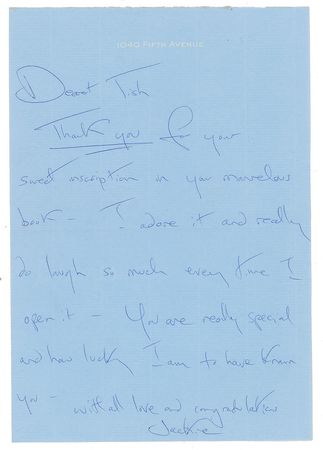 1040 FIFTH AVENUE
Dearest Tish
Thank you for your
sweet inscription in your marvelous
book - I adore it and really
do laugh so much every time I
open it - You are really special
and how lucky I am to have known
you - with all love and congratulations
Jackie